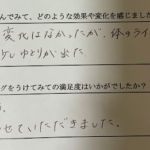 んでみて、どのような効果や変化を感じました
変化はなかったが、体のライ
少しゆとりが出た
グをうけてみての満足度はいかがでしたか?
せていただきました。